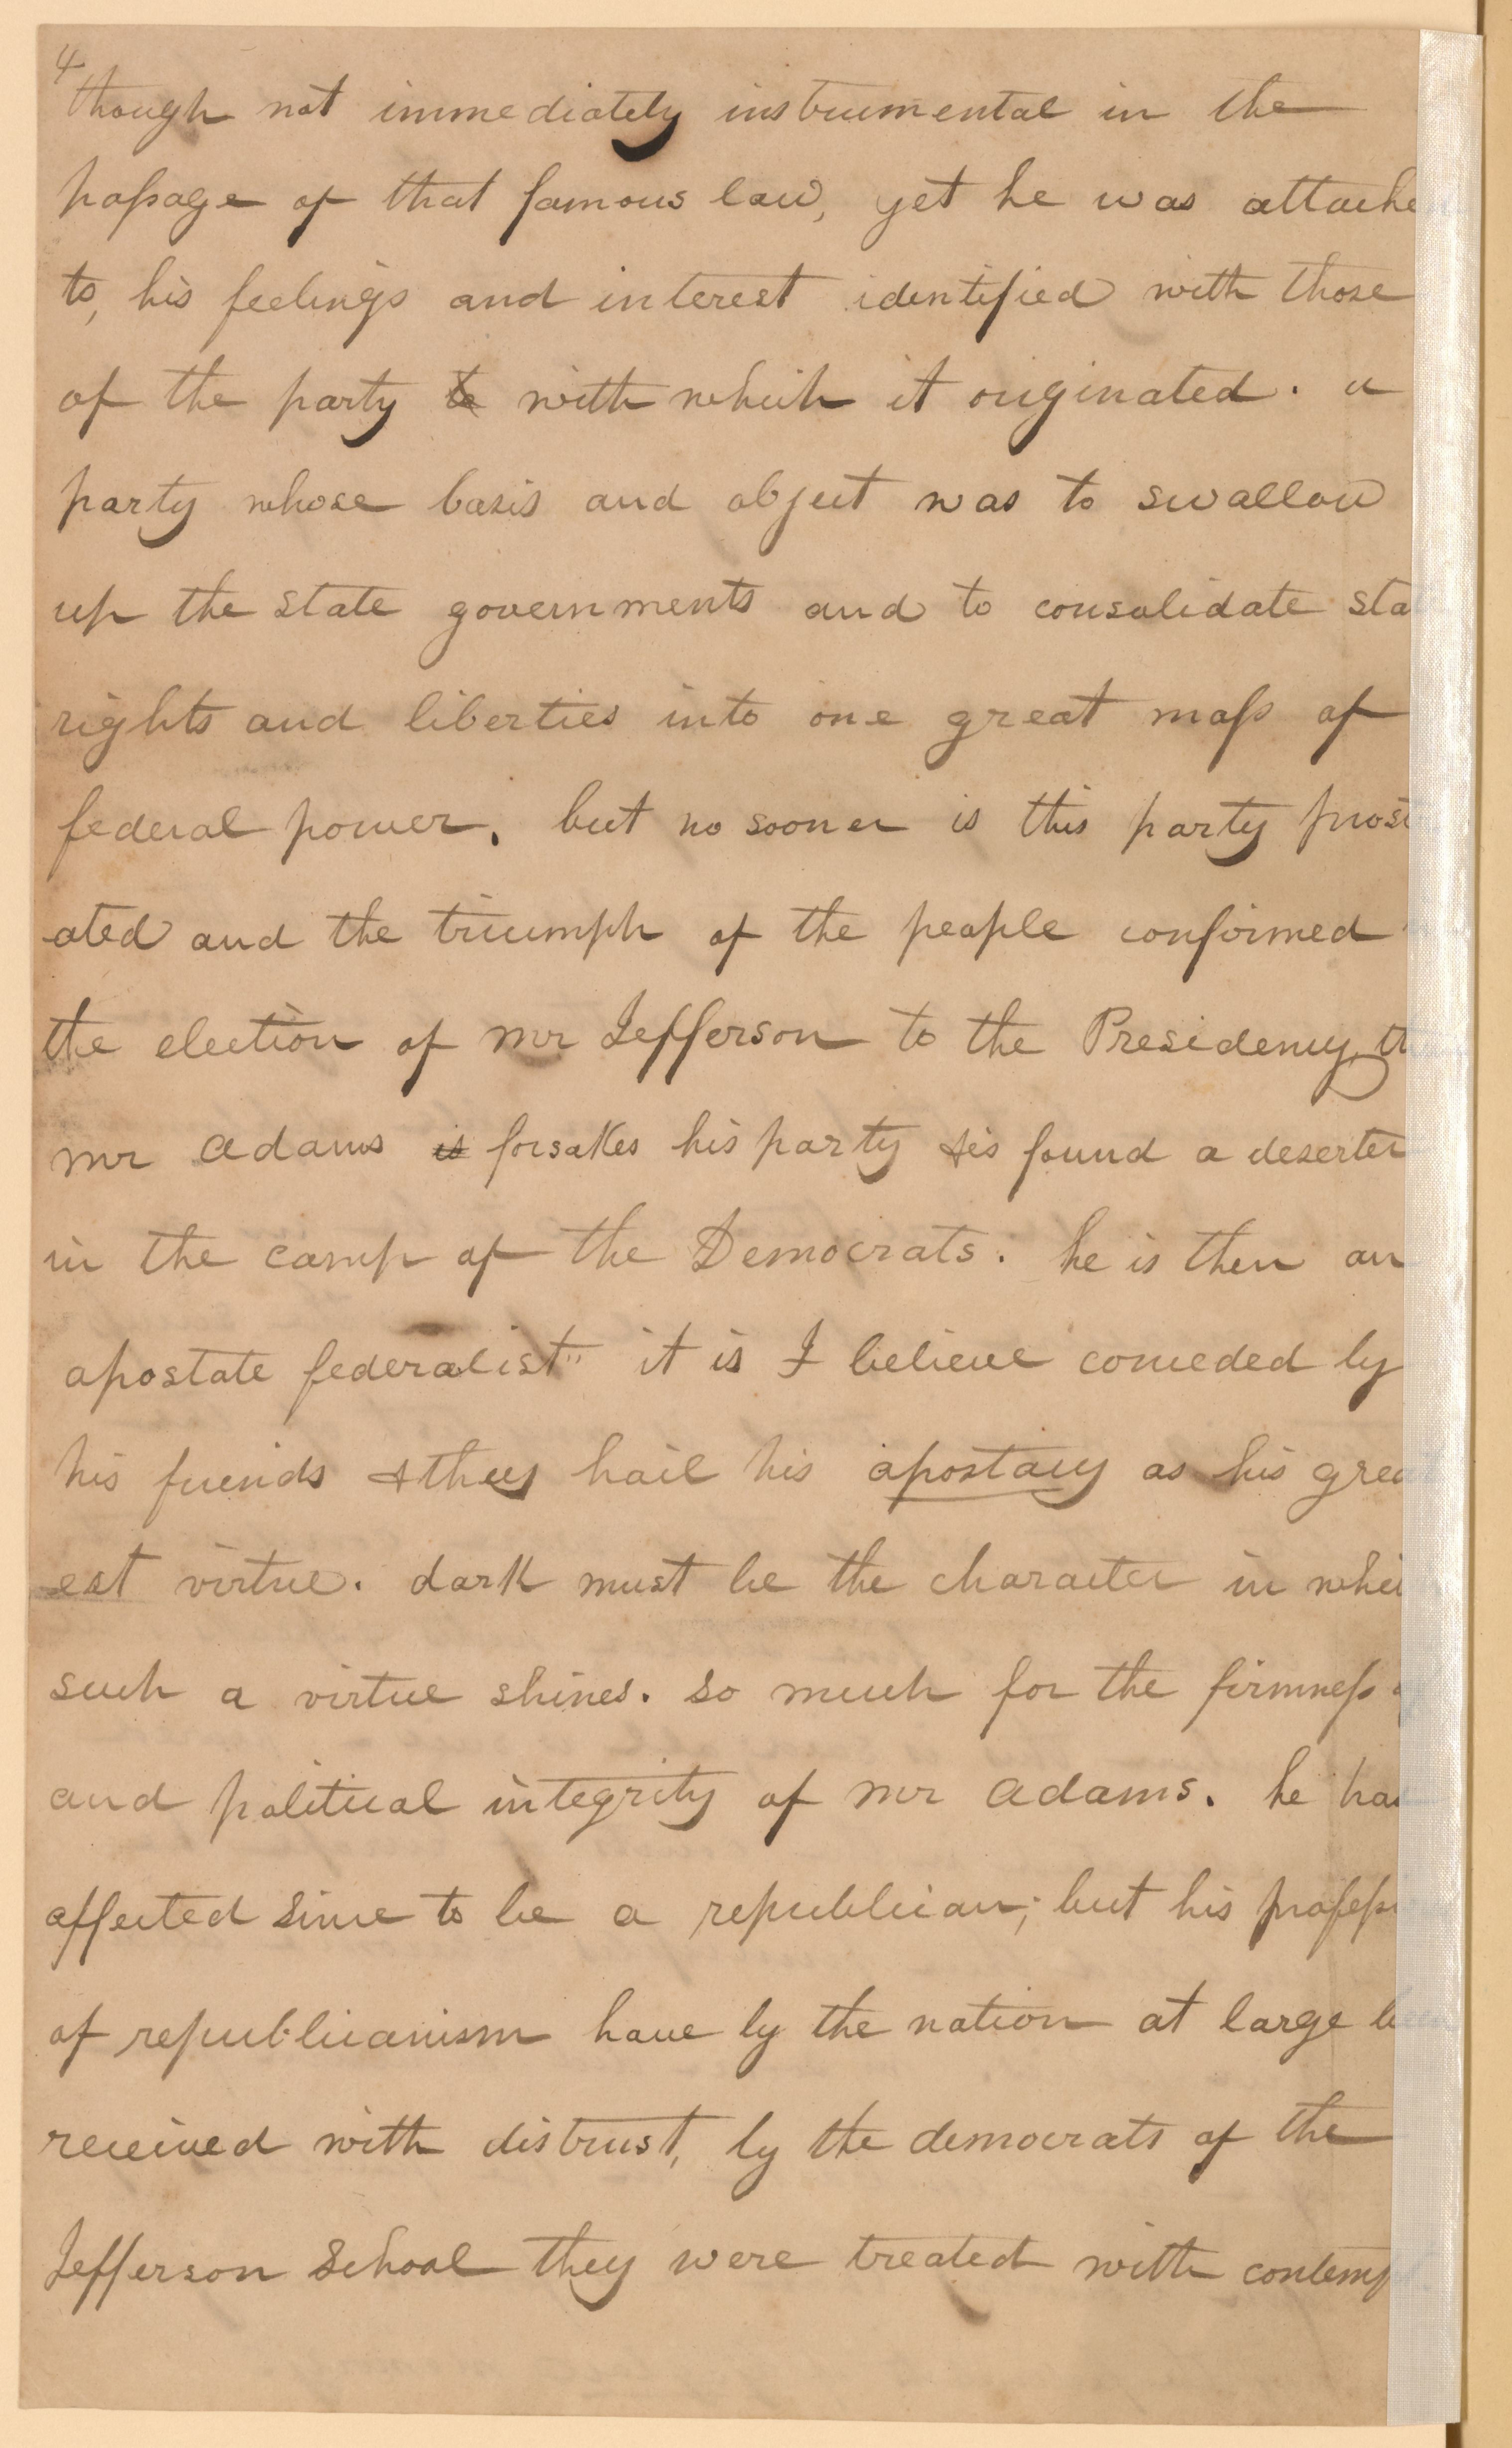 4
though not immediately instrumental in the
passage of that famous law, yet he was attache
to, his feelings and interest identified with those
of the party to with which it originated. a
party whose basis and object was to swallow
up the state governments and to consolidate sta
rights and liberties into one great mass of
federal power. but no sooner is this party prost
ated and the triumph of the people confirmed
the election of mr Jefferson to the Presidency, th
mr Adams is forsakes his party & is found a deserter
in the camp of the Democrats. he is then an
apostate federalist" it is I believe conceded by
his friends & they hail his apostacy as his grea
est virtue. dark must be the character in whic
such a virtue shines. so much for the firmness
and political integrity of mr Adams. he has
affected since to be a republican; but his professi
of republicanism have by the nation at large be
received with distrust, by the democrats of the
Jefferson School they were treated with contemp